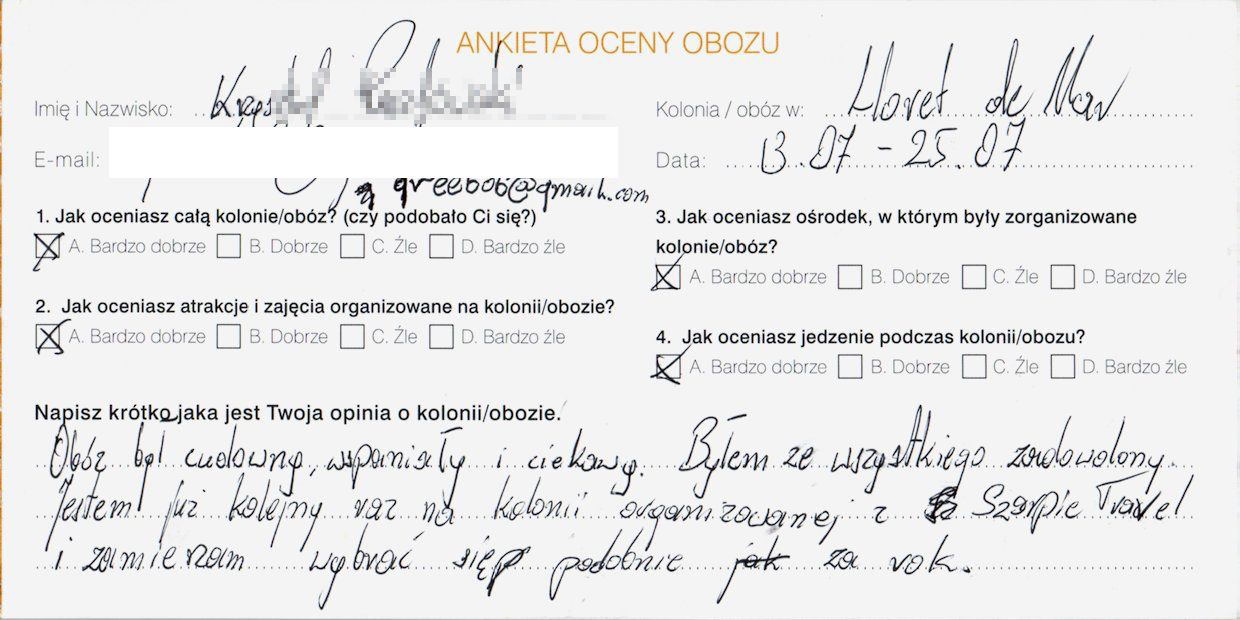 ANKIETA OCENY OBOZU
Imię i Nazwisko:
Kolonia / obóz w: Lloret de Mar
E-mail:
Data: 13.07 - 25.07
1. Jak oceniasz całą kolonie/obóz? (czy podobało Ci się?)
A. Bardzo dobrze B. Dobrze C. Źle D. Bardzo źle
2. Jak oceniasz atrakcje i zajęcia organizowane na kolonii/obozie?
A. Bardzo dobrze B. Dobrze C. Źle D. Bardzo źle
3. Jak oceniasz ośrodek, w którym były zorganizowane
kolonie/obóz?
A. Bardzo dobrze B. Dobrze C. Źle D. Bardzo źle
4. Jak oceniasz jedzenie podczas kolonii/obozu?
A. Bardzo dobrze B. Dobrze C. Źle D. Bardzo źle
Napisz krótko jaka jest Twoja opinia o kolonii/obozie.
Obóz był cudowny, wspaniały i ciekawy. Byłem ze wszystkiego zadowolony.
Jestem już kolejny raz na kolonii organizowanej z Szarpie Travel
i zamierzam wybrać się podobnie za rok.